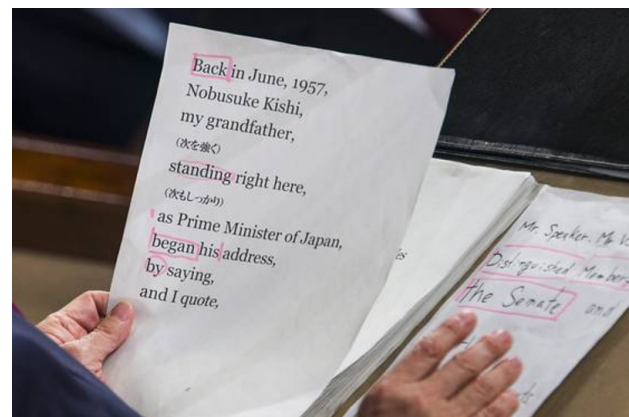 Back in June, 1957,
Nobusuke Kishi,
my grandfather,
（次を強く）
standing right here,
（次もしっかり）
as Prime Minister of Japan,
began his address,
by saying,
and I quote,
Mr. Speaker, Mr. V
Distinguished Members
the Senate and